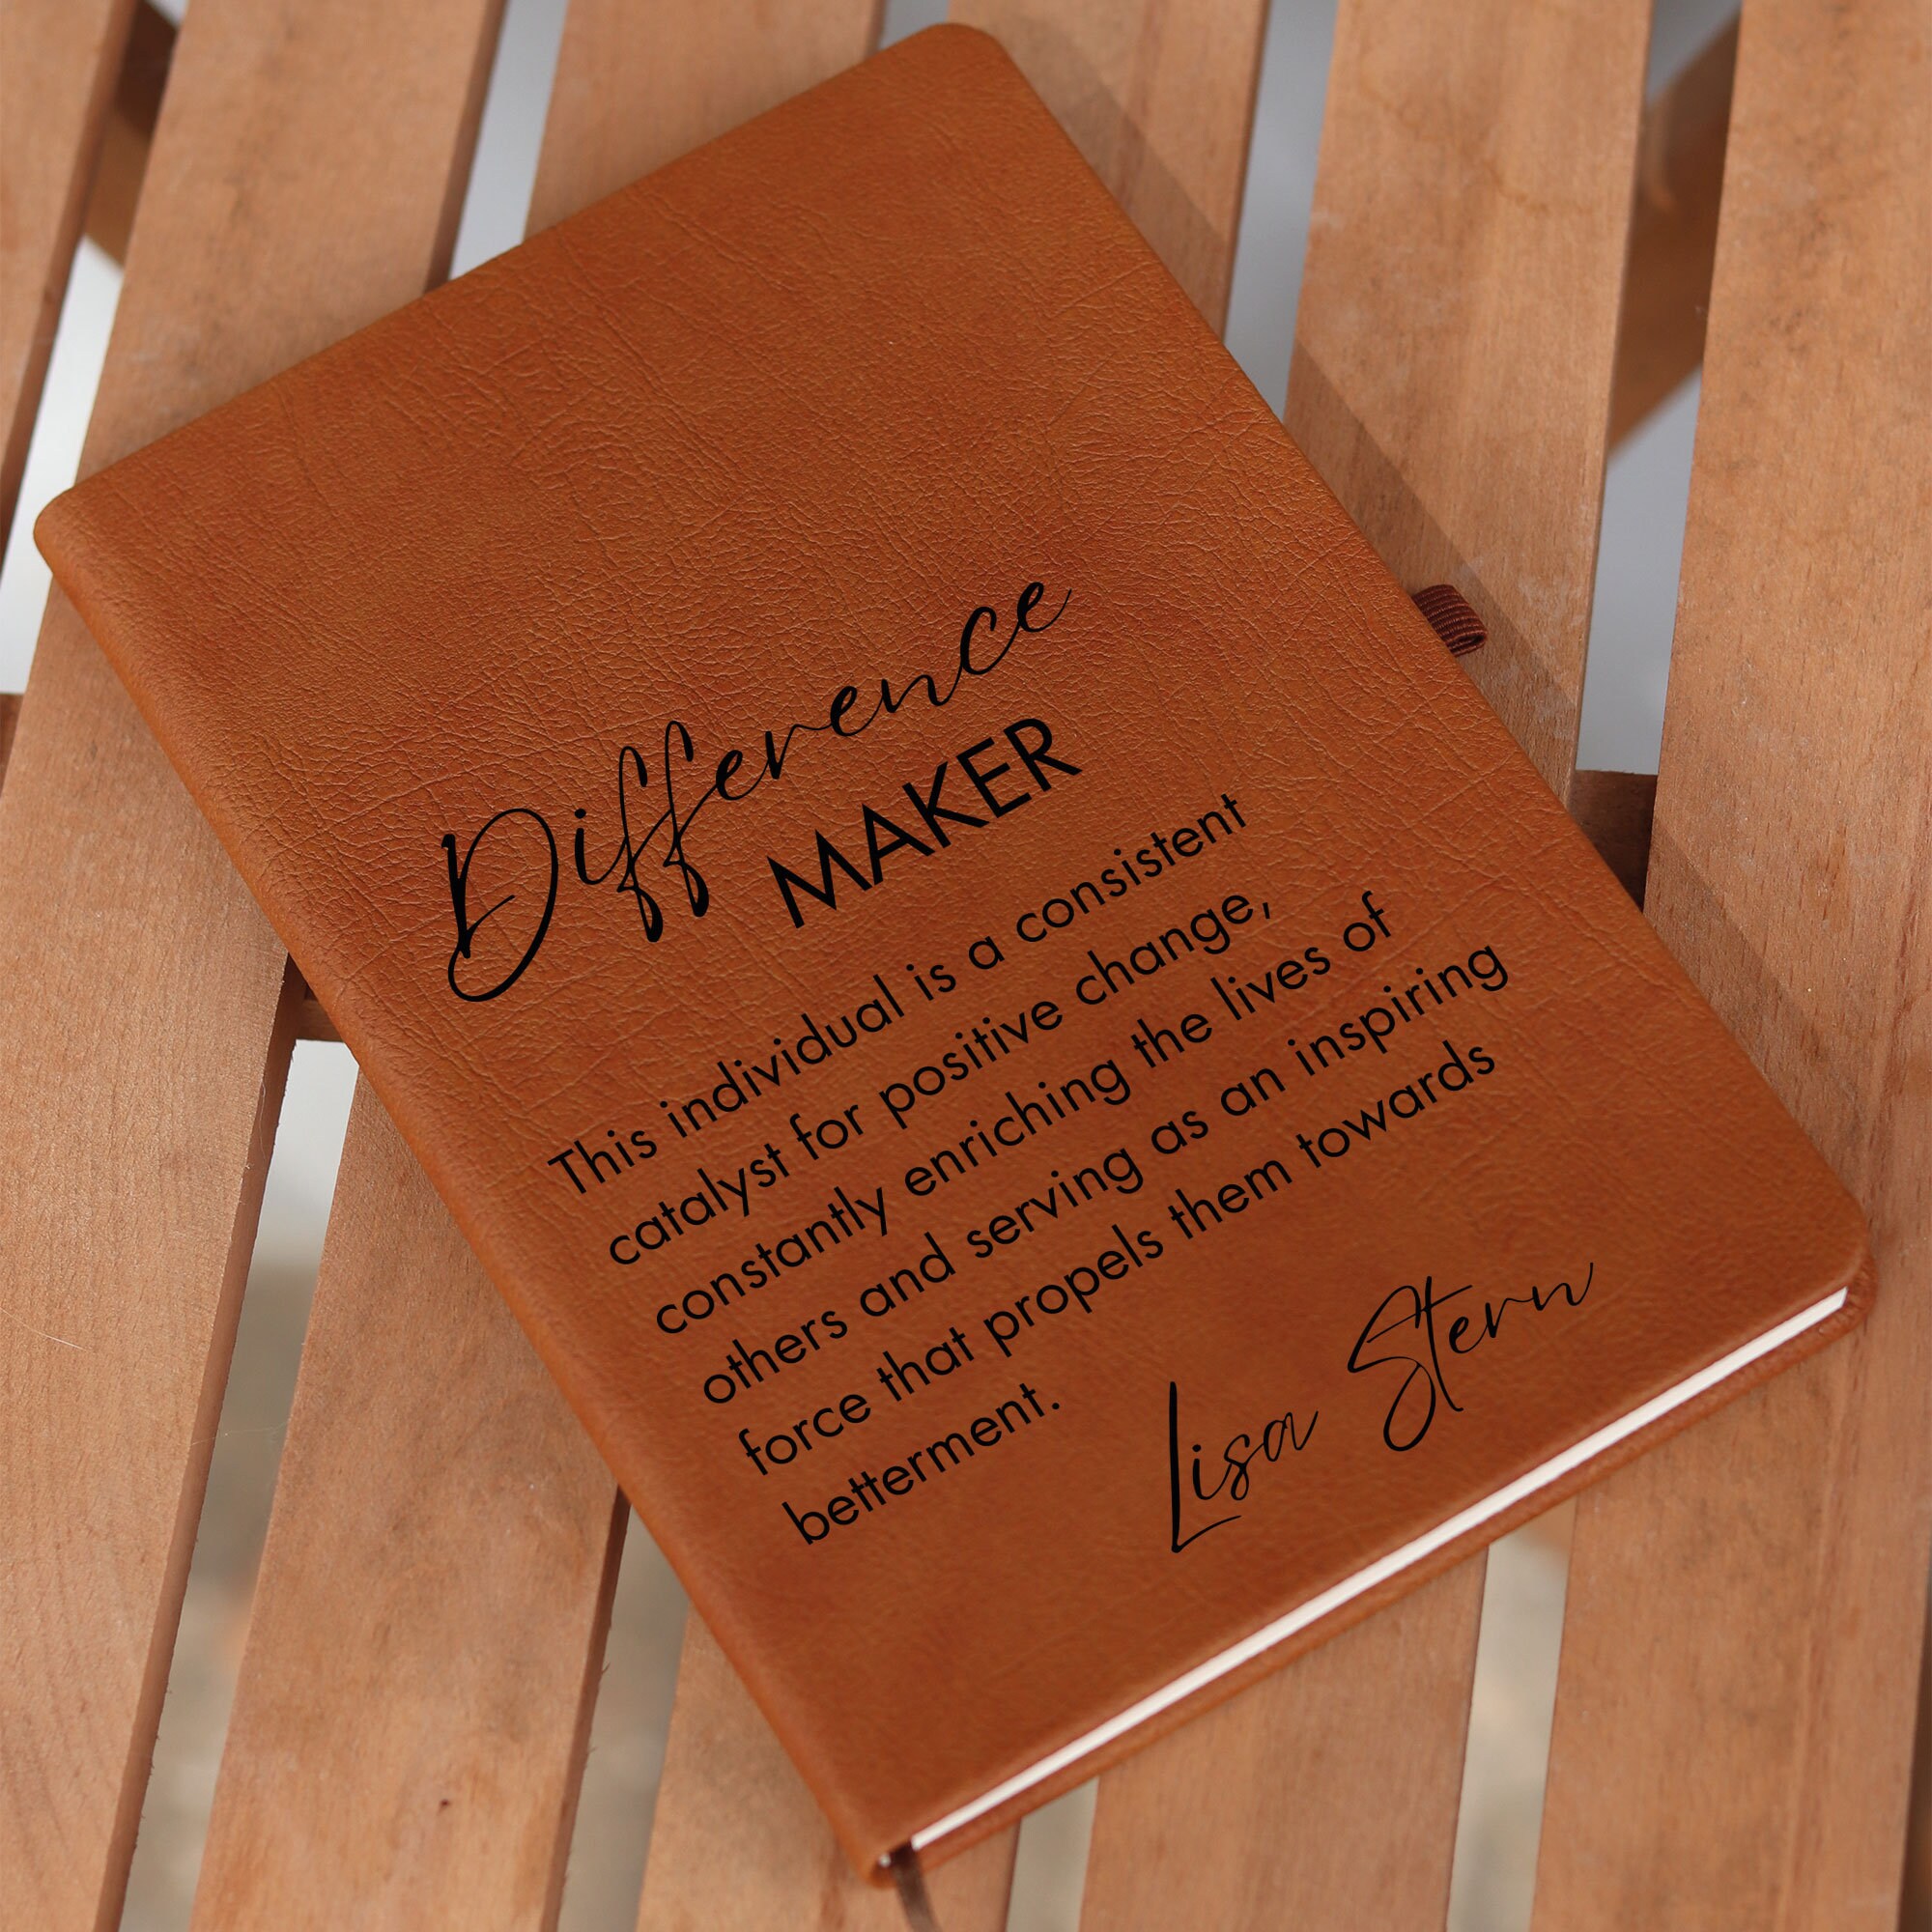 Difference
MAKER
This individual is a consistent
catalyst for positive change,
constantly enriching the lives of
others and serving as an inspiring
force that propels them towards
betterment.
Lisa Stern